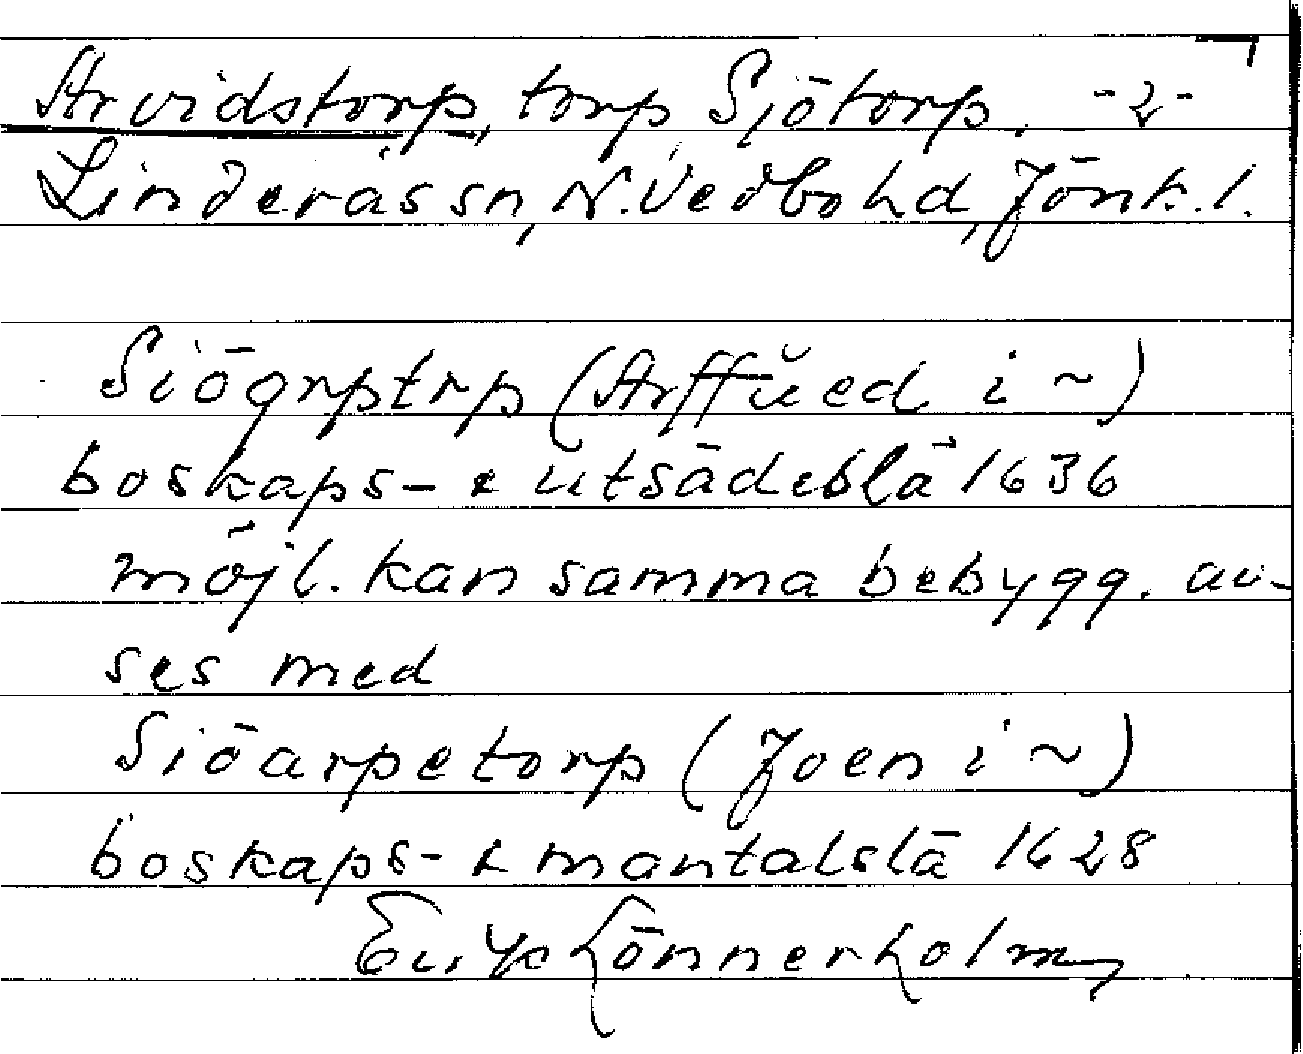 Arvidstorp, torp, Sjötorp. -2-
Linderås sn, N. Vedbo hd, Jönk. l.
Siögrptrp (Arffŭed i ~)
boskaps- & utsädeslä 1636
möjl. kan samma bebygg. av-
ses med
Siöarpetorp (Joen i ~)
boskaps- & mantalslä 1628
Lönnerholm